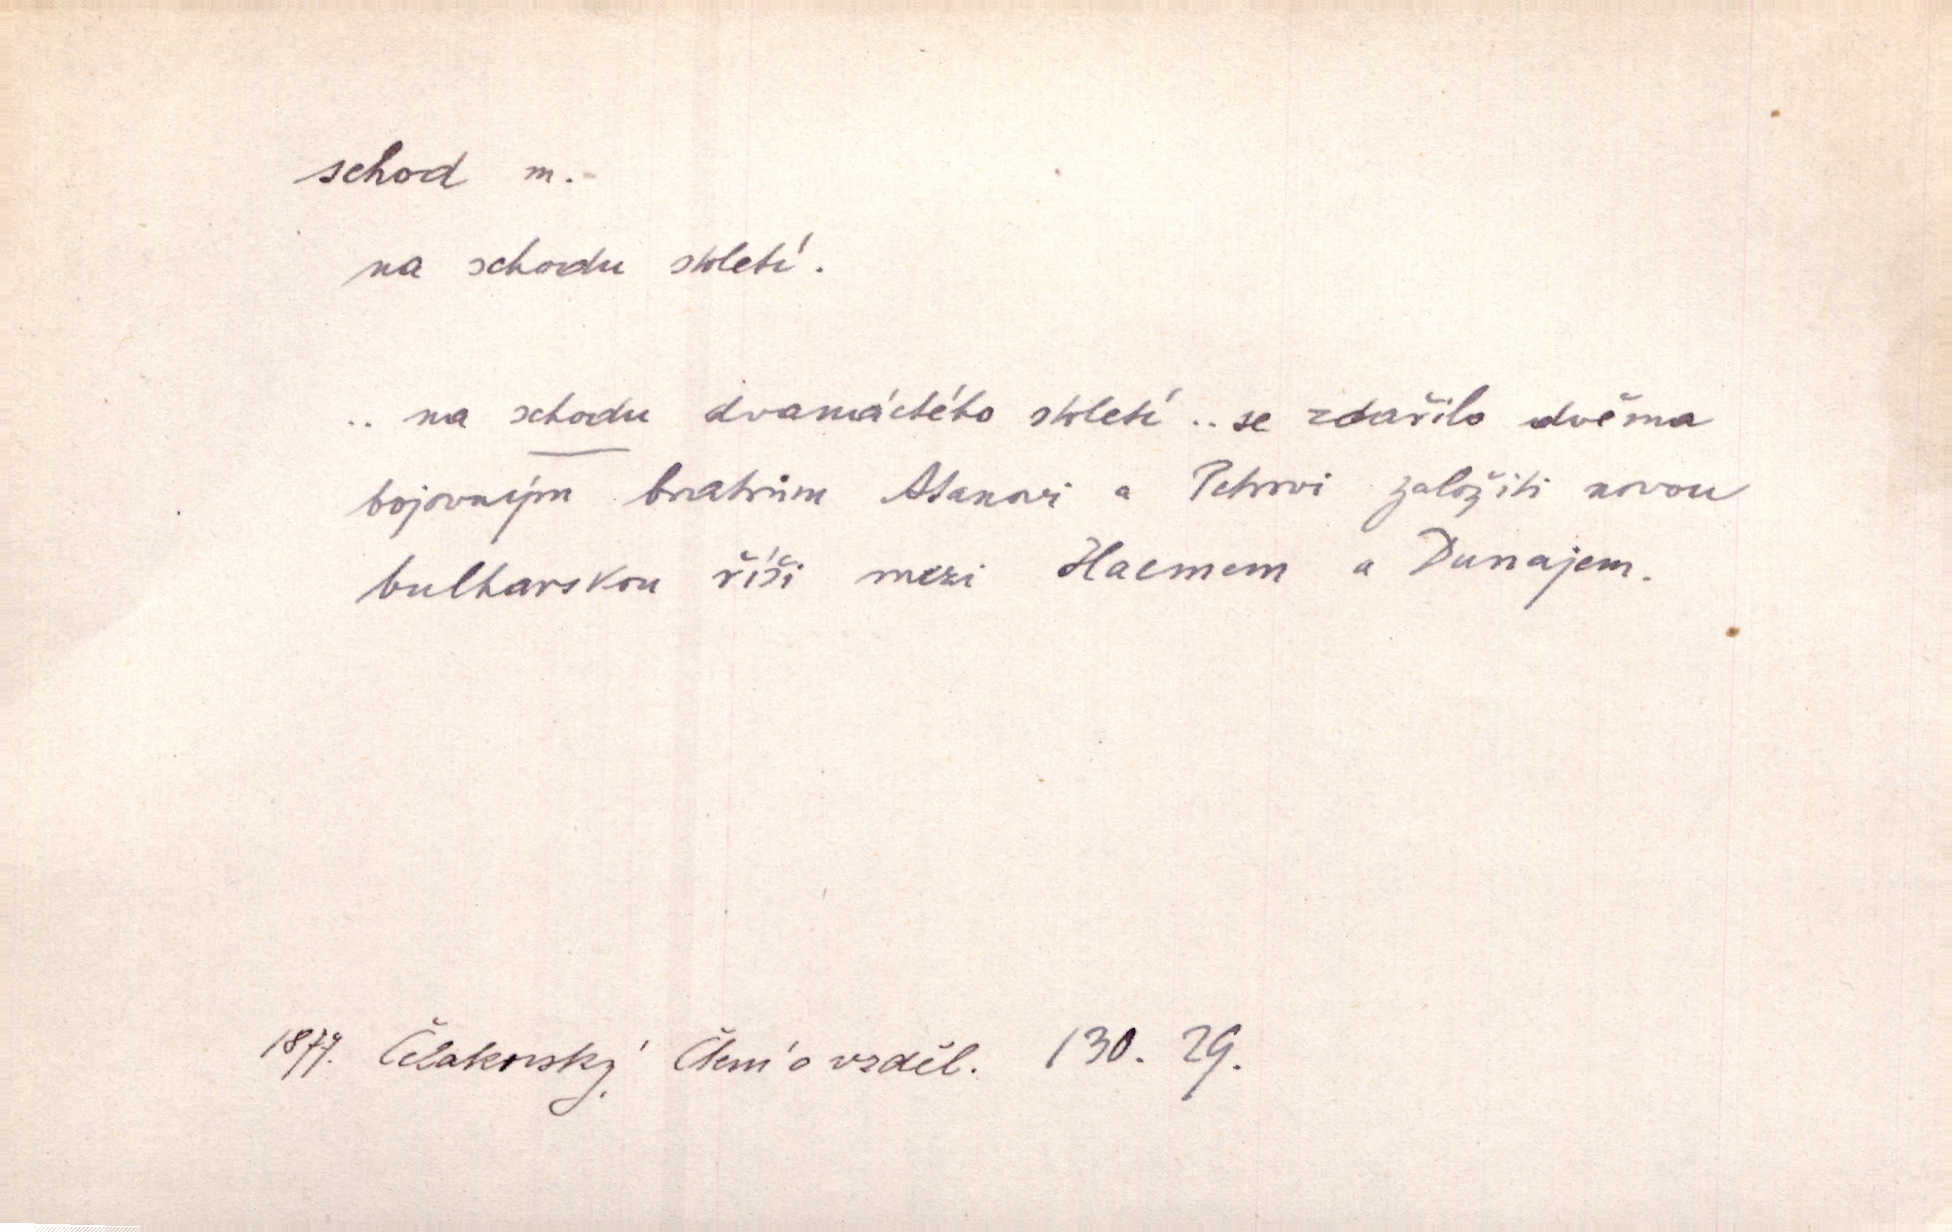 schod m.
na schodu století.
.. na schodu dvanáctého století .. se zdařilo dvěma
bojovným bratrům Asanovi a Petrovi založiti novou
bulharskou říši mezi Haemem a Dunajem.
1877. Čelakovský, Čtení o vzděl. 130. 29.